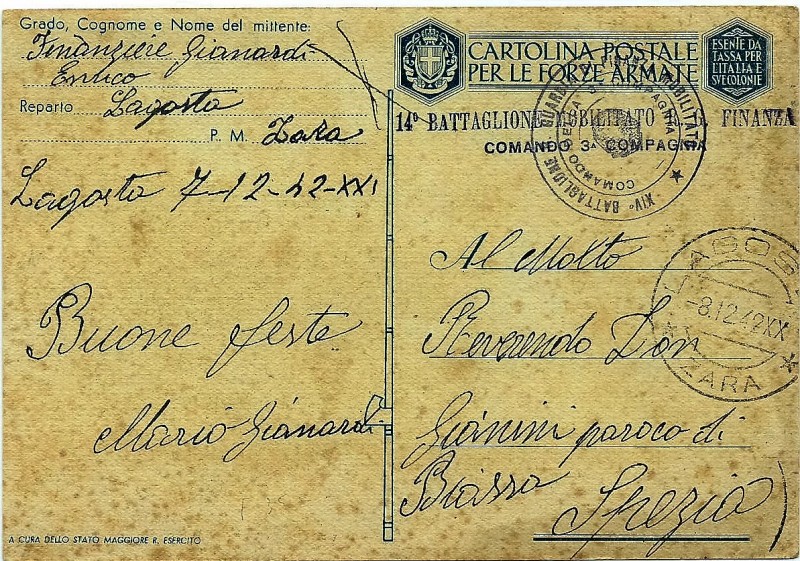 Grado, Cognome e Nome del mittente:
Finanziere Gianardi
Enrico
Reparto Lagosta
P. M. Zara
Lagosta 7-12-42-XXI
Buone feste
Mario Gianardi
A CURA DELLO STATO MAGGIORE R. ESERCITO
CARTOLINA POSTALE
PER LE FORZE ARMATE
ESENTE DA
TASSA PER
L'ITALIA E
SVE COLONIE
14º BATTAGLIONE MOBILITATO R. G. FINANZA
COMANDO 3ª COMPAGNIA
XIVº BATTAGLIONE GUARDIA FINANZA MOBILITATO
COMANDO DELLA 3ª COMPAGNIA
LAGOSTA
-8.12.42XX
ZARA
Al Molto
Reverendo Don
Gianini paroco di
Biassa
Spezia